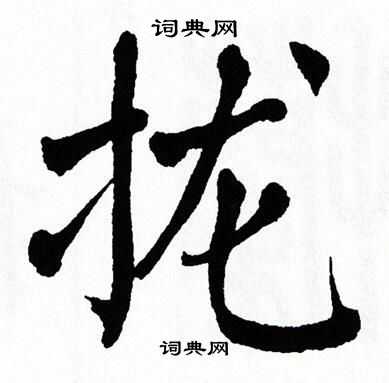 词典网
拢
词典网